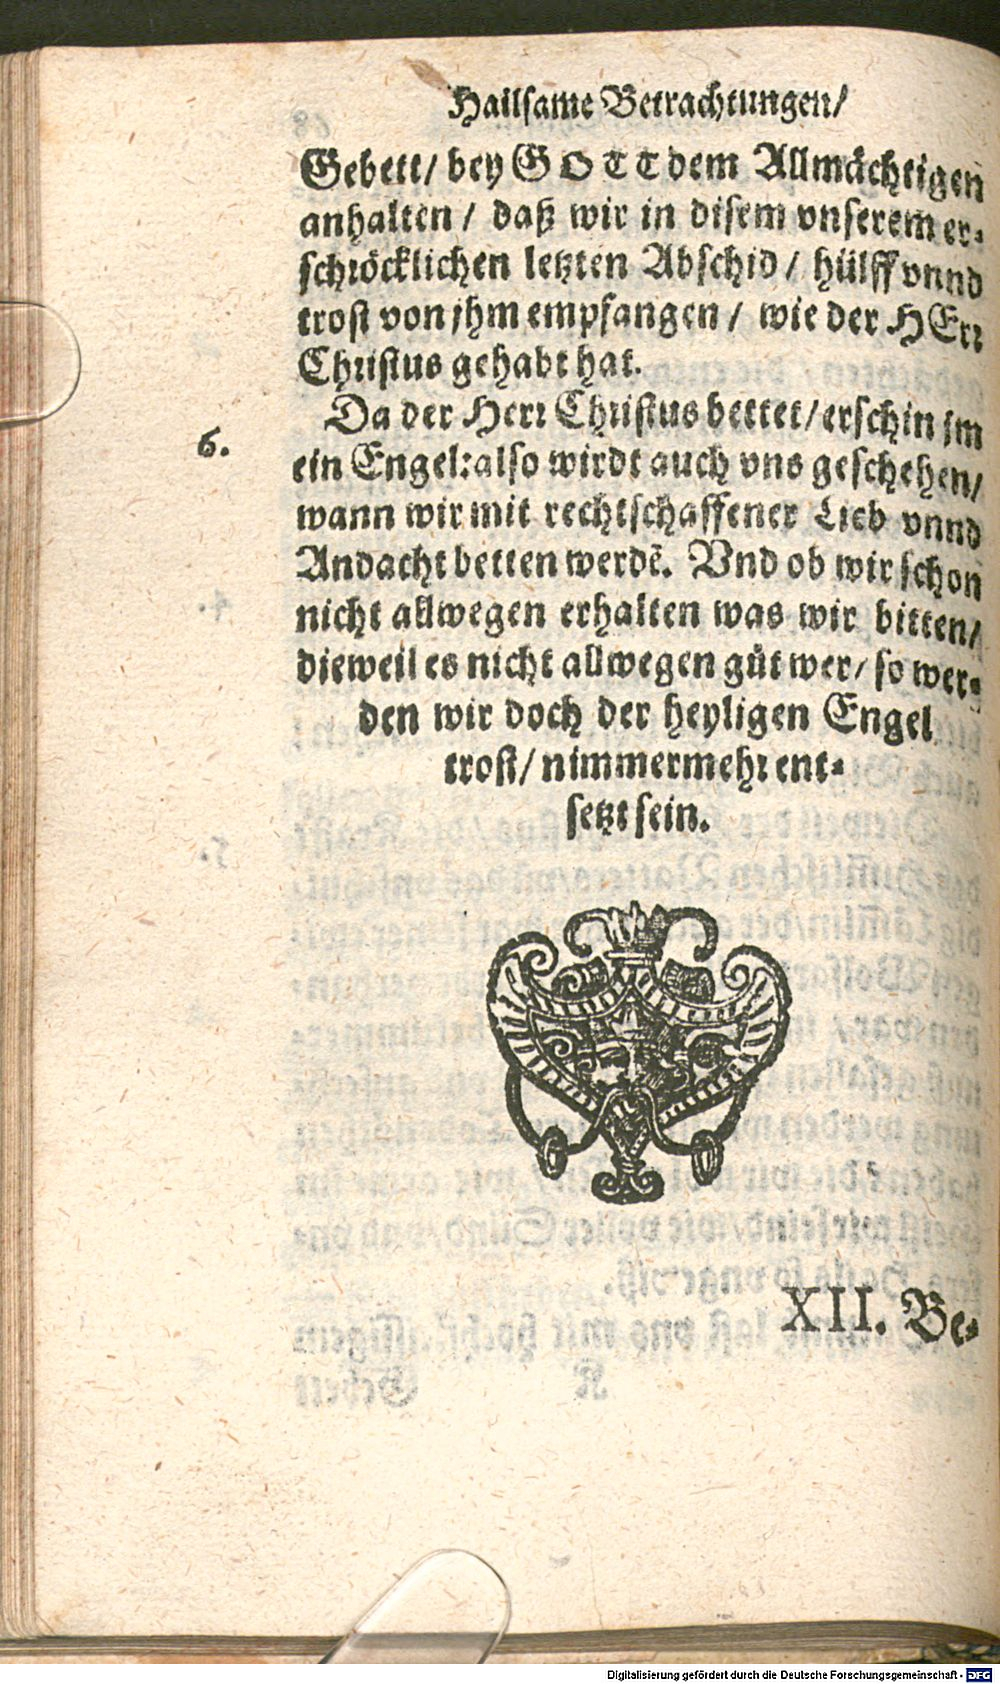 Hailsame Betrachtungen/
Gebett/ bey GOTT dem Allmächtigen
anhalten/ daß wir in disem vnserem er-
schröcklichen letzten Abschid/ hülff vnnd
trost von jhm empfangen/ wie der HErr
Christus gehabt hat.
6. Da der Herr Christus bettet/ erschin jm
ein Engel: also wirdt auch vns geschehen/
wann wir mit rechtschaffener Lieb vnnd
Andacht betten werdẽ. Vnd ob wir schon
nicht allwegen erhalten was wir bitten/
dieweil es nicht allwegen gůt wer/ so wer-
den wir doch der heyligen Engel
trost/ nimmermehr ent-
setzt sein.
XII. Be-
Digitalisierung gefördert durch die Deutsche Forschungsgemeinschaft - DFG